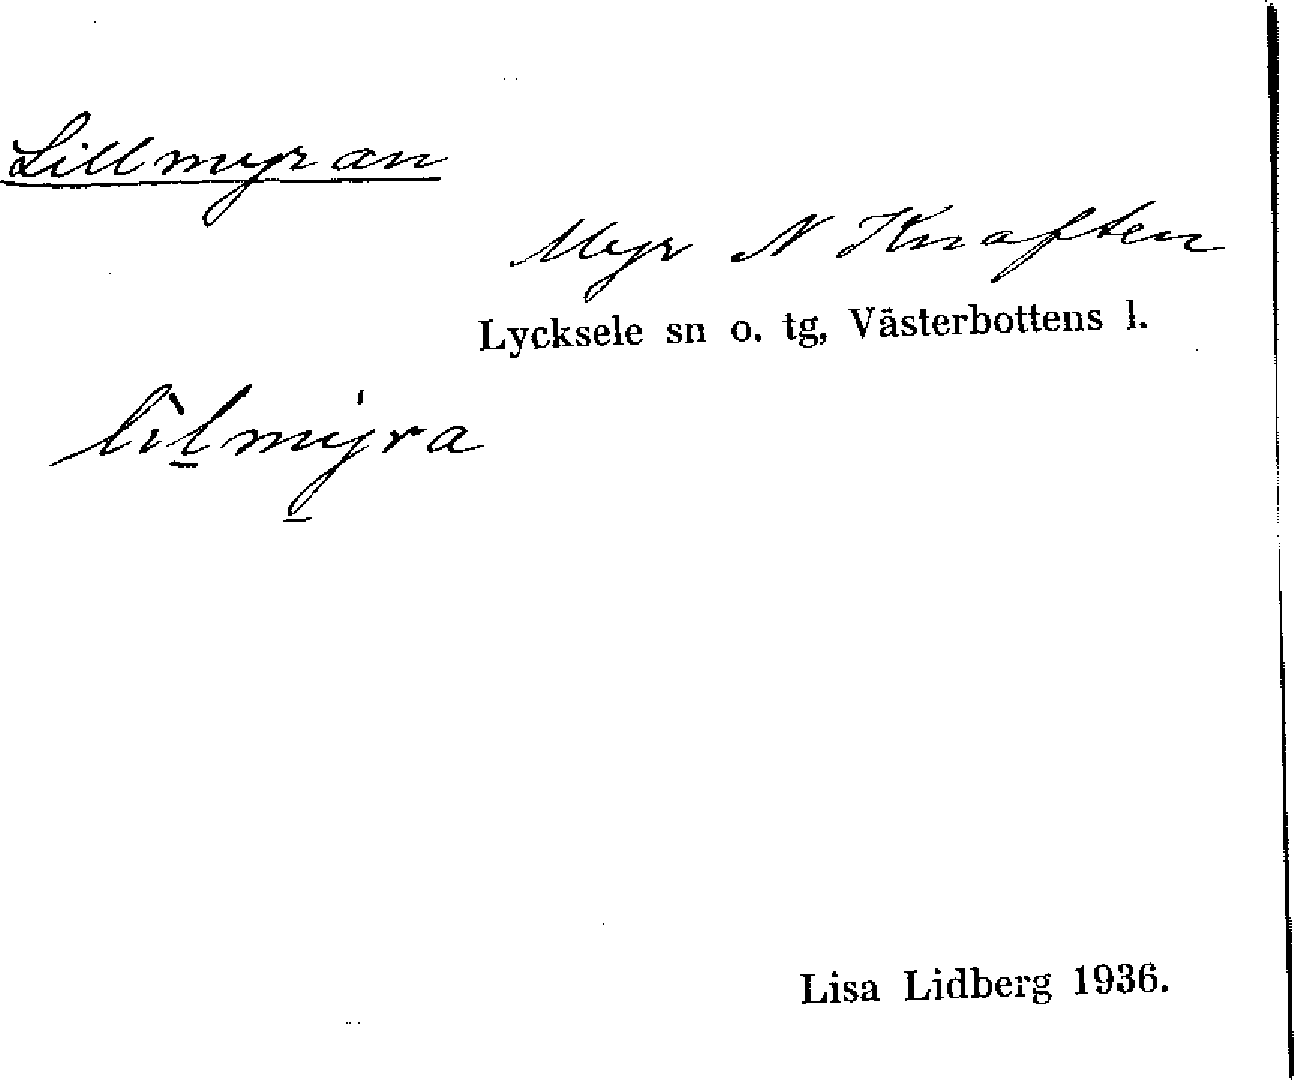 Lillmyran
Myr N Knaften
Lycksele sn o. tg, Västerbottens l.
lìl̲mýra
Lisa Lidberg 1936.